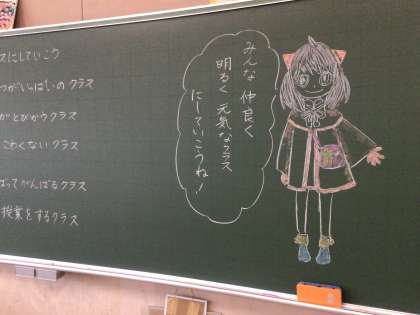 スにしていこう
つがいっぱいのクラス
がとびかうクラス
こわくないクラス
ばってがんばるクラス
授業をするクラス
みんな 仲良く
明るく 元気なクラス
にしていこうね！